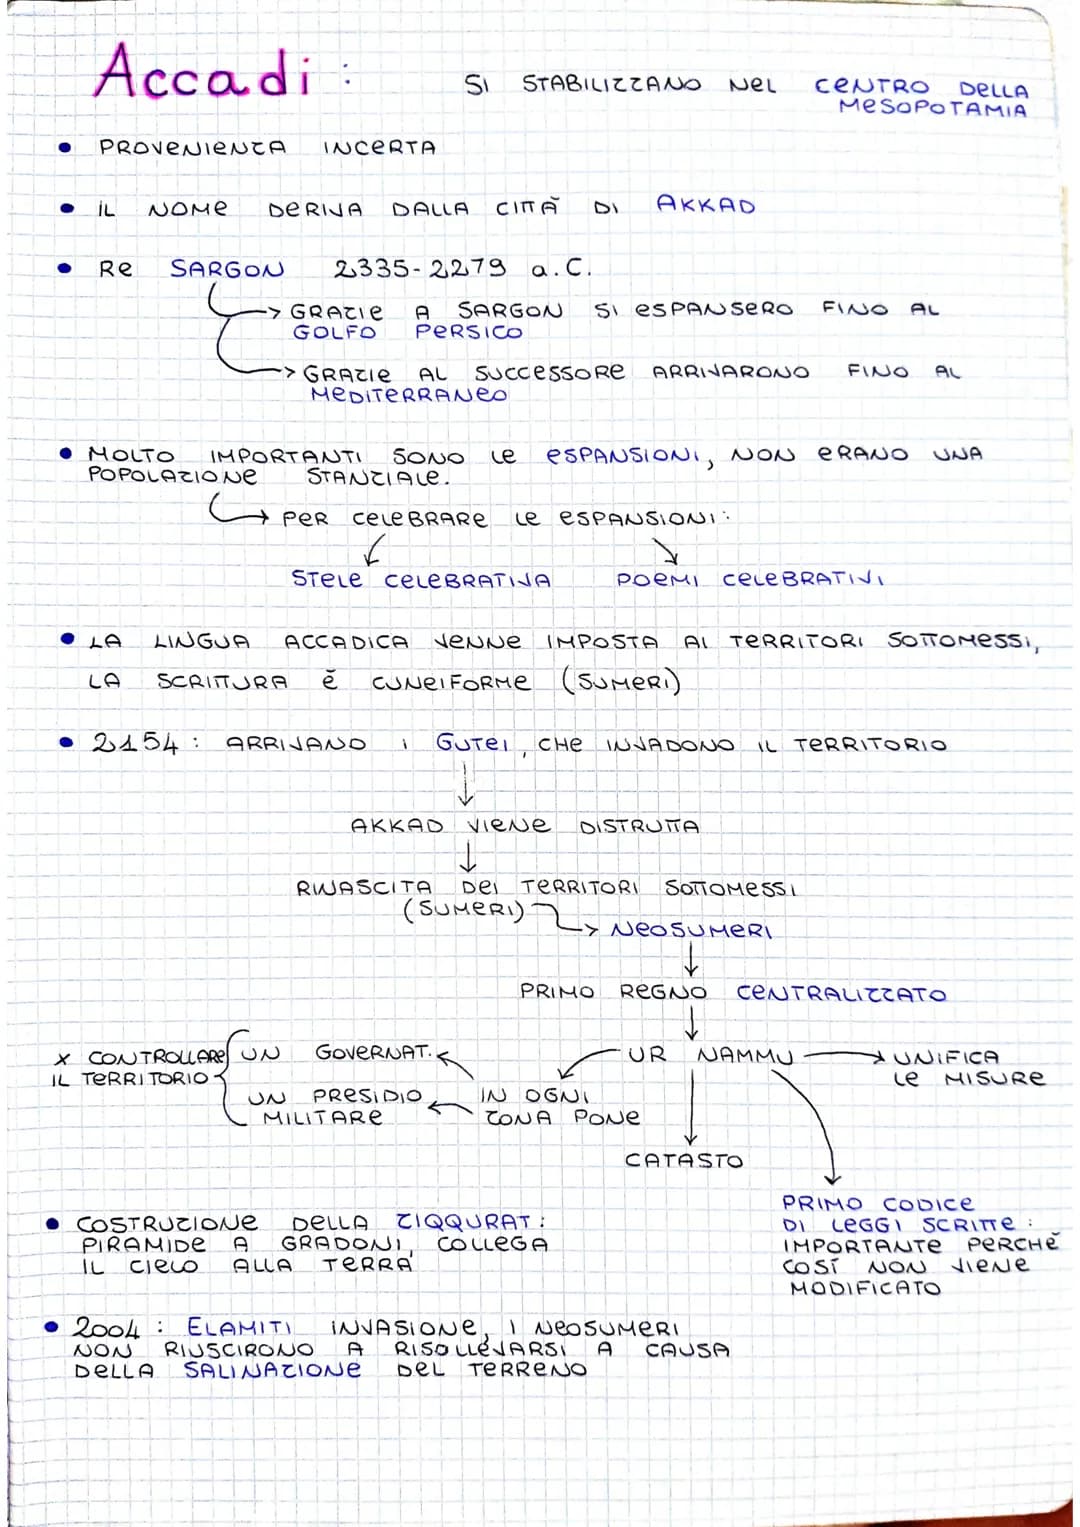 Accadi : SI STABILIZZANO NEL CENTRO DELLA
MESOPOTAMIA
• PROVENIENZA INCERTA
• IL NOME DERIVA DALLA CITTÀ DI AKKAD
• RE SARGON 2335-2279 a.C.
→ GRAZIE A SARGON SI ESPANSERO FINO AL
GOLFO PERSICO
→ GRAZIE AL SUCCESSORE ARRIVARONO FINO AL
MEDITERRANEO
• MOLTO IMPORTANTI SONO LE ESPANSIONI, NON ERANO UNA
POPOLAZIONE STANZIALE.
→ PER CELEBRARE LE ESPANSIONI:
STELE CELEBRATIVA POEMI CELEBRATIVI
• LA LINGUA ACCADICA VENNE IMPOSTA AI TERRITORI SOTTOMESSI,
LA SCRITURA È CUNEIFORME (SUMERI)
• 2154 : ARRIVANO I GUTEI, CHE INVADONO IL TERRITORIO
↓
AKKAD VIENE DISTRUTTA
↓
RINASCITA DEI TERRITORI SOTTOMESSI
(SUMERI) → NEOSUMERI
↓
PRIMO REGNO CENTRALIZZATO
↓
X CONTROLLARE UN GOVERNAT. ← UR NAMMU → UNIFICA
IL TERRITORIO LE MISURE
UN PRESIDIO ← IN OGNI
MILITARE ZONA PONE
CATASTO
PRIMO CODICE
DI LEGGI SCRITTE :
IMPORTANTE PERCHÉ
COSÌ NON VIENE
MODIFICATO
• COSTRUZIONE DELLA ZIQQURAT :
PIRAMIDE A GRADONI, COLLEGA
IL CIELO ALLA TERRA
• 2004 : ELAMITI INVASIONE, I NEOSUMERI
NON RIUSCIRONO A RISOLLEVARSI A CAUSA
DELLA SALINAZIONE DEL TERRENO